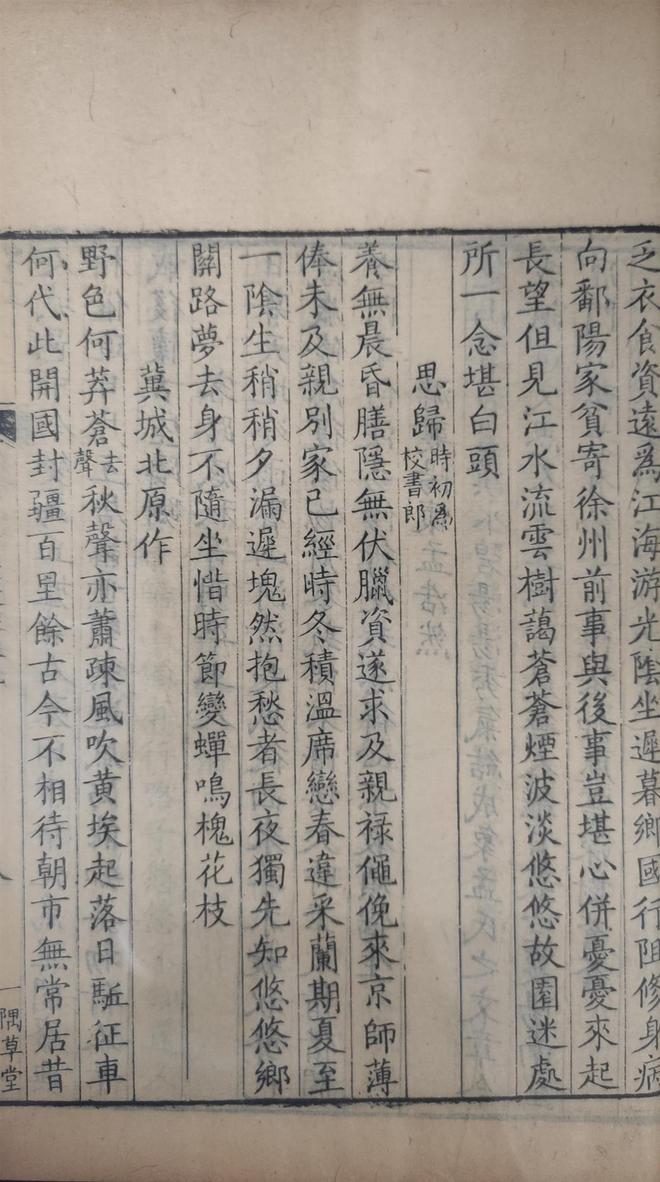 乏衣食資遠爲江海游光陰坐遲暮鄉國行阻修身病
向鄱陽家貧寄徐州前事與後事豈堪心併憂憂來起
長望但見江水流雲樹藹蒼蒼煙波淡悠悠故園迷處
所一念堪白頭
思歸時初爲校書郎
養無晨昏膳隱無伏臘資遂求及親祿僶俛來京師薄
俸未及親別家已經時冬積溫席戀春違采蘭期夏至
一陰生稍稍夕漏遲塊然抱愁者長夜獨先知悠悠鄉
關路夢去身不隨坐惜時節變蟬鳴槐花枝
蓂城北原作
野色何莽蒼去聲秋聲亦蕭疎風吹黄埃起落日駈征車
何代此開國封疆百里餘古今不相待朝市無常居昔
一隅草堂